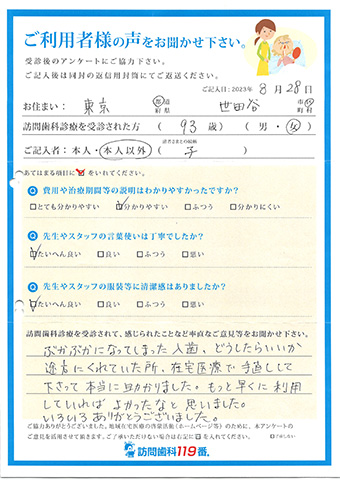 ご利用者様の声をお聞かせ下さい。
受診後のアンケートにご協力下さい。
ご記入後は同封の返信用封筒にてご返送ください。
ご記入日：2023年 8月 28日
お住まい： 東京 都道府県 世田谷 市区町村
訪問歯科診療を受診された方 （ 93 歳）（ 男・女 ）
ご記入者：本人・本人以外（ 子 ）
あてはまる項目に☑をいれてください。
Q 費用や治療期間等の説明はわかりやすかったですか？
□とても分かりやすい ☑分かりやすい □ふつう □分かりにくい
Q 先生やスタッフの言葉使いは丁寧でしたか？
☑たいへん良い □良い □ふつう □悪い
Q 先生やスタッフの服装等に清潔感はありましたか？
☑たいへん良い □良い □ふつう □悪い
訪問歯科診療を受診されて、感じられたことなど率直なご意見等をお聞かせ下さい。
ぶかぶかになってしまった入歯、どうしたらいいか
途方にくれていた所、在宅医療で手直しして
下さって本当に助かりました。もっと早くに利用
していれば よかったなと 思いました。
いろいろ ありがとうございました。
ご協力ありがとうございました。地域在宅医療の啓蒙活動（ホームページ等）のために、本アンケートの
ご意見を活用させて頂きます。ご了承いただけない場合は右記に☑を入れてください。
訪問歯科119番。